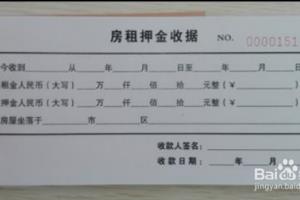 房租押金收据 NO. 0000151
今收到 从 年 月 日至 年 月 日
租金人民币（大写） 万 仟 佰 拾 元整（￥ ）
押金人民币（大写） 万 仟 佰 拾 元整（￥ ）
房屋坐落于 市 区
收款人签名：
收款日期： 年 月
Baidu经验
jingyan.baidu.com